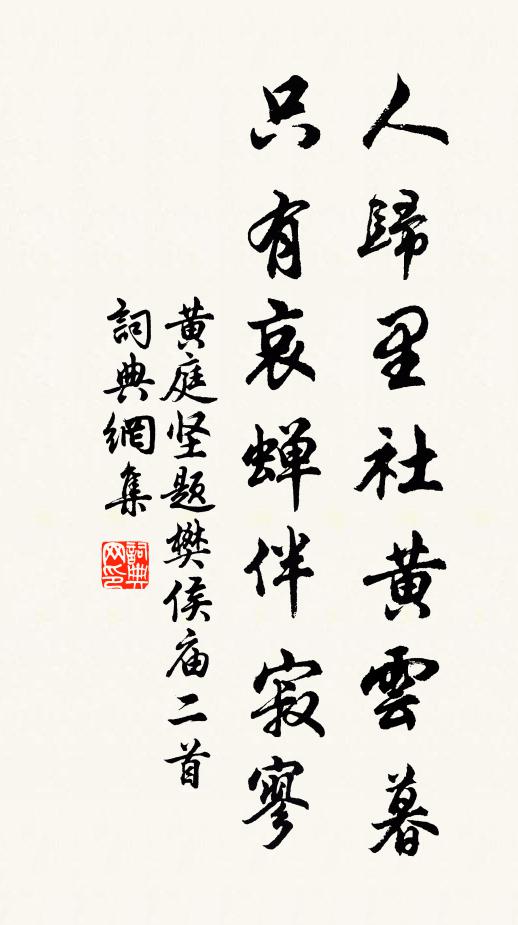 人歸里社黄雲暮
只有哀蝉伴寂寥
黄庭坚題樊侯庙二首
詞典網集
詞典
网印